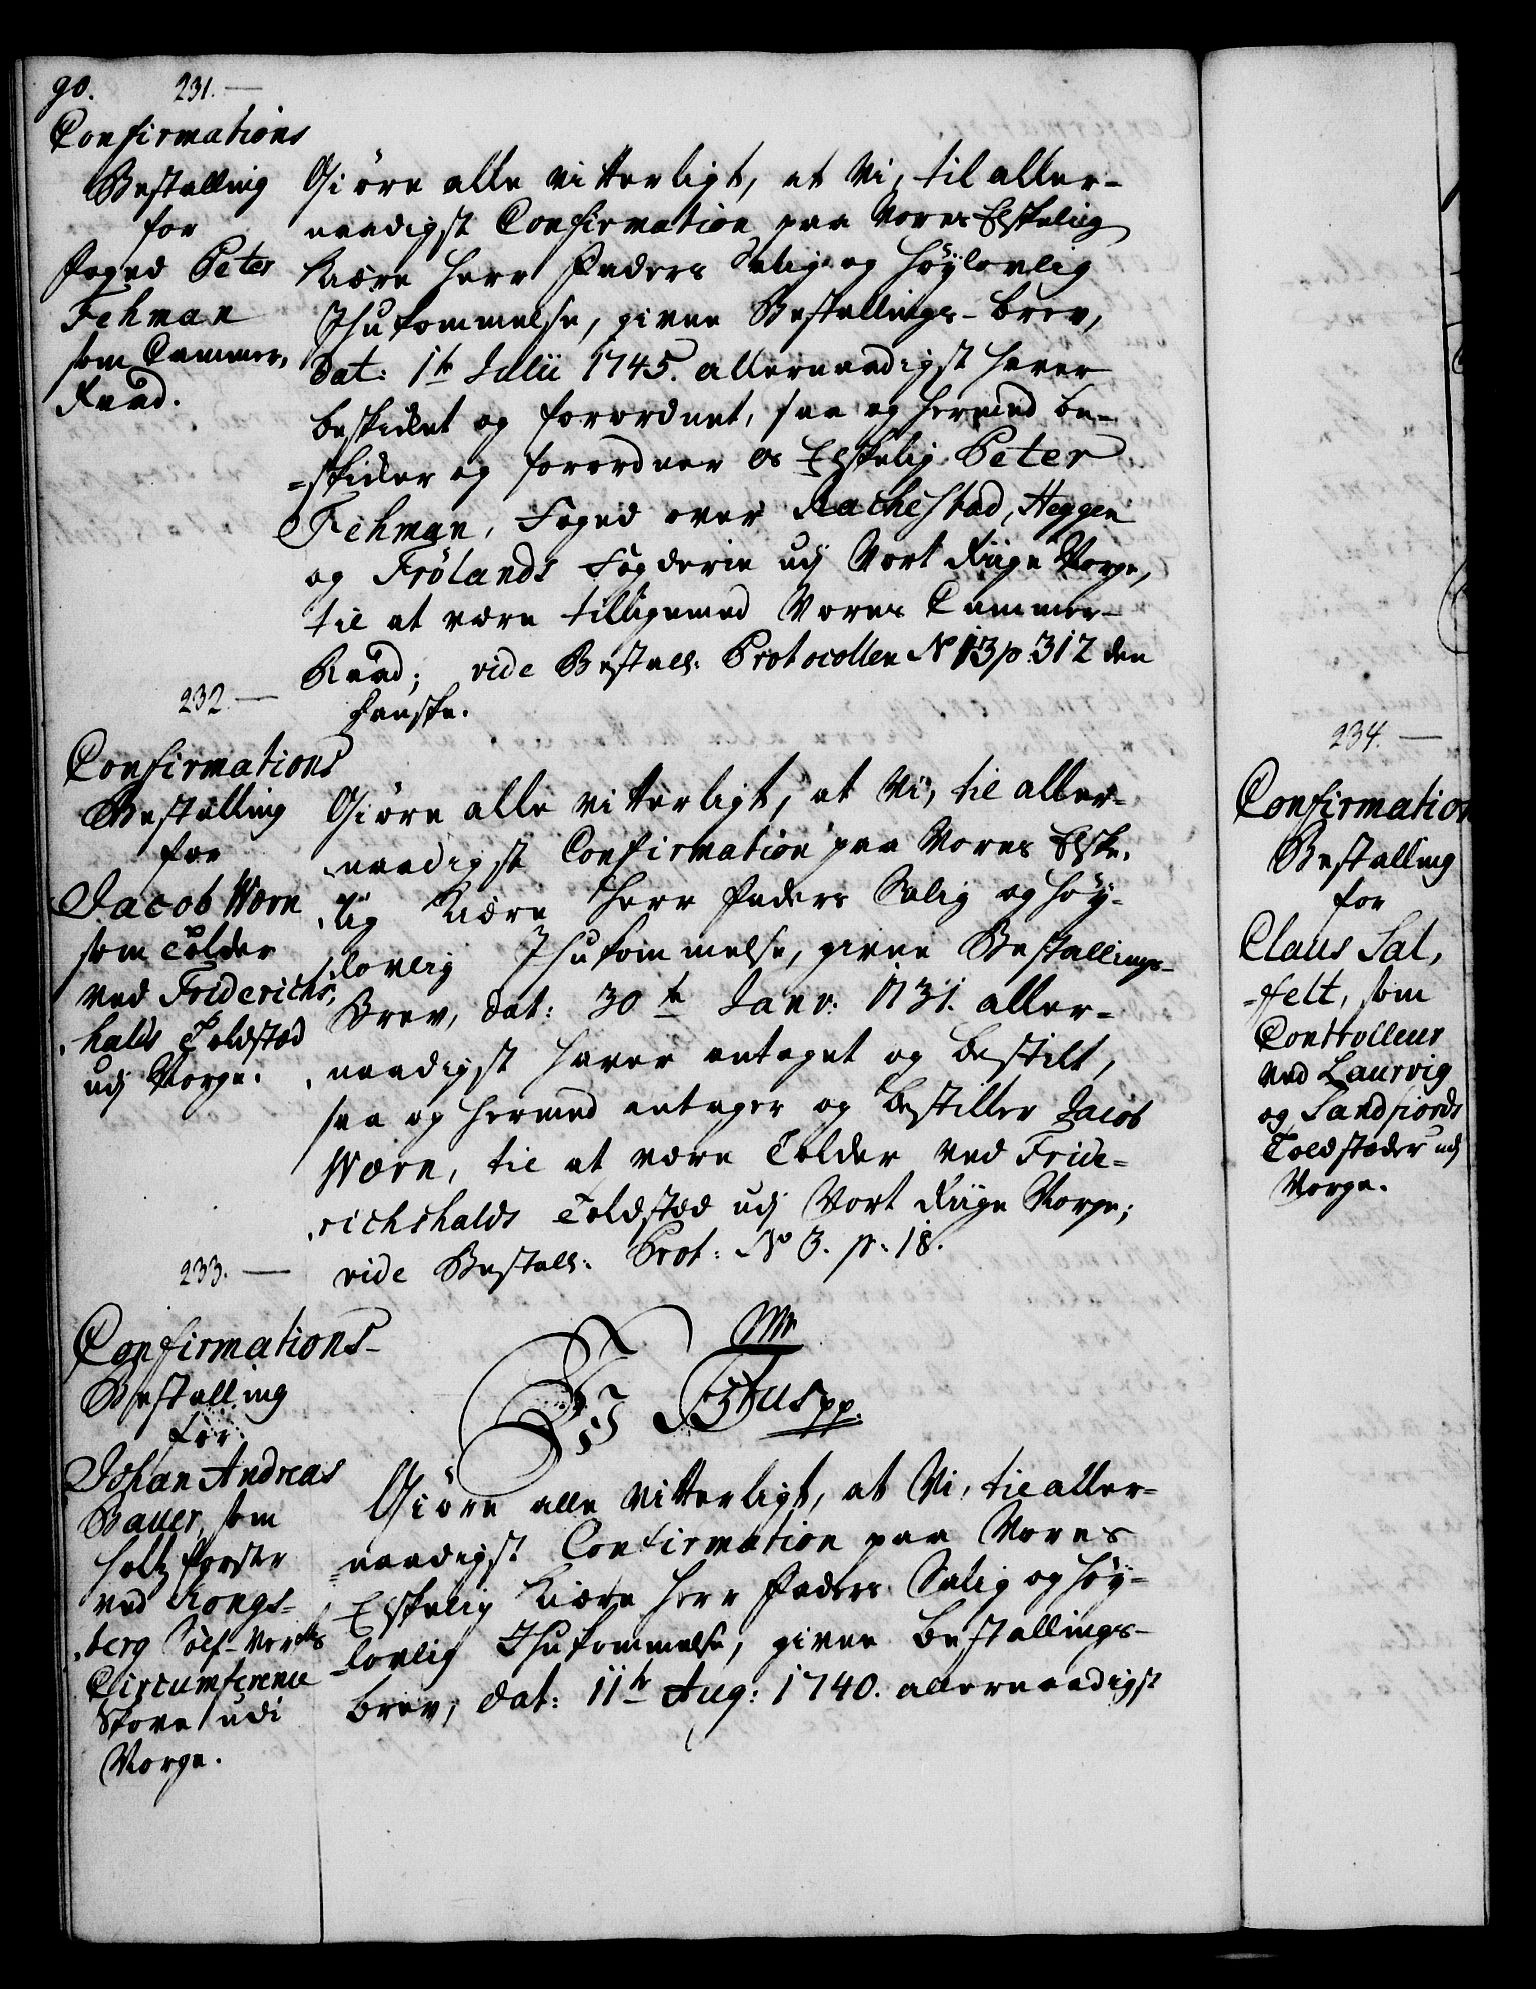 90. 231.
Confirmations
Bestalling
for
Foged Peter
Fehman
som Cammer-
Raad.
Giöre alle vitterligt, at Vi, til aller-
naadigst Confirmation paa Vores Elskelig
Kiære Herr Faders Salig og Höylovlig
Ihukommelse, given Bestallings-Brev,
dat: 1te Julii 1745. allernaadigst haver
beskikket og forordnet, saa og hermed be-
-skikker og forordner os Elskelig Peter
Fehman, Foged over Rachestad, Heggen
og Frölands Fogderie udj Vort Riige Norge,
til at være tilligemed Vores Cammer-
Raad; vide Bestall: Protocollen No 13 p. 312 den
Danske.
232.
Confirmations
Bestalling
for
Jacob Wærn
som Tolder
ved Friderichs-
halds Toldsted
udj Norge.
Giöre alle vitterligt, at Vi, til aller-
naadigst Confirmation paa Vores Elske-
lig Kiære Herr Faders Salig og Höy-
lovlig Ihukommelse, given Bestallings-
Brev, dat: 30te Janv: 1731. aller-
naadigst haver antaget og bestilt,
saa og hermed antager og bestiller Jacob
Wærn, til at være Tolder ved Fride-
richshalds Toldsted udj Vort Riige Norge;
vide Bestall: Prot: No 3. p. 18.
233.
Confirmations-
Bestalling
for
Johan Andreas
Bauer, som
Holtz Forster
ved Kongs-
berg Sölf-Verks
Circumference
Skove udi
Norge.
Giöre alle vitterligt, at Vi, til aller-
naadigst Confirmation paa Vores
Elskelig Kiære Herr Faders Salig og Höy-
lovlig Ihukommelse, given Bestallings-
brev, dat: 11te Aug: 1740. allernaadigst
234.
Confirmation
Bestalling
for
Claus Sal,
-felt, som
Controlleur
ved Laurvig
og Sandfiords
Toldsteder udj
Norge.